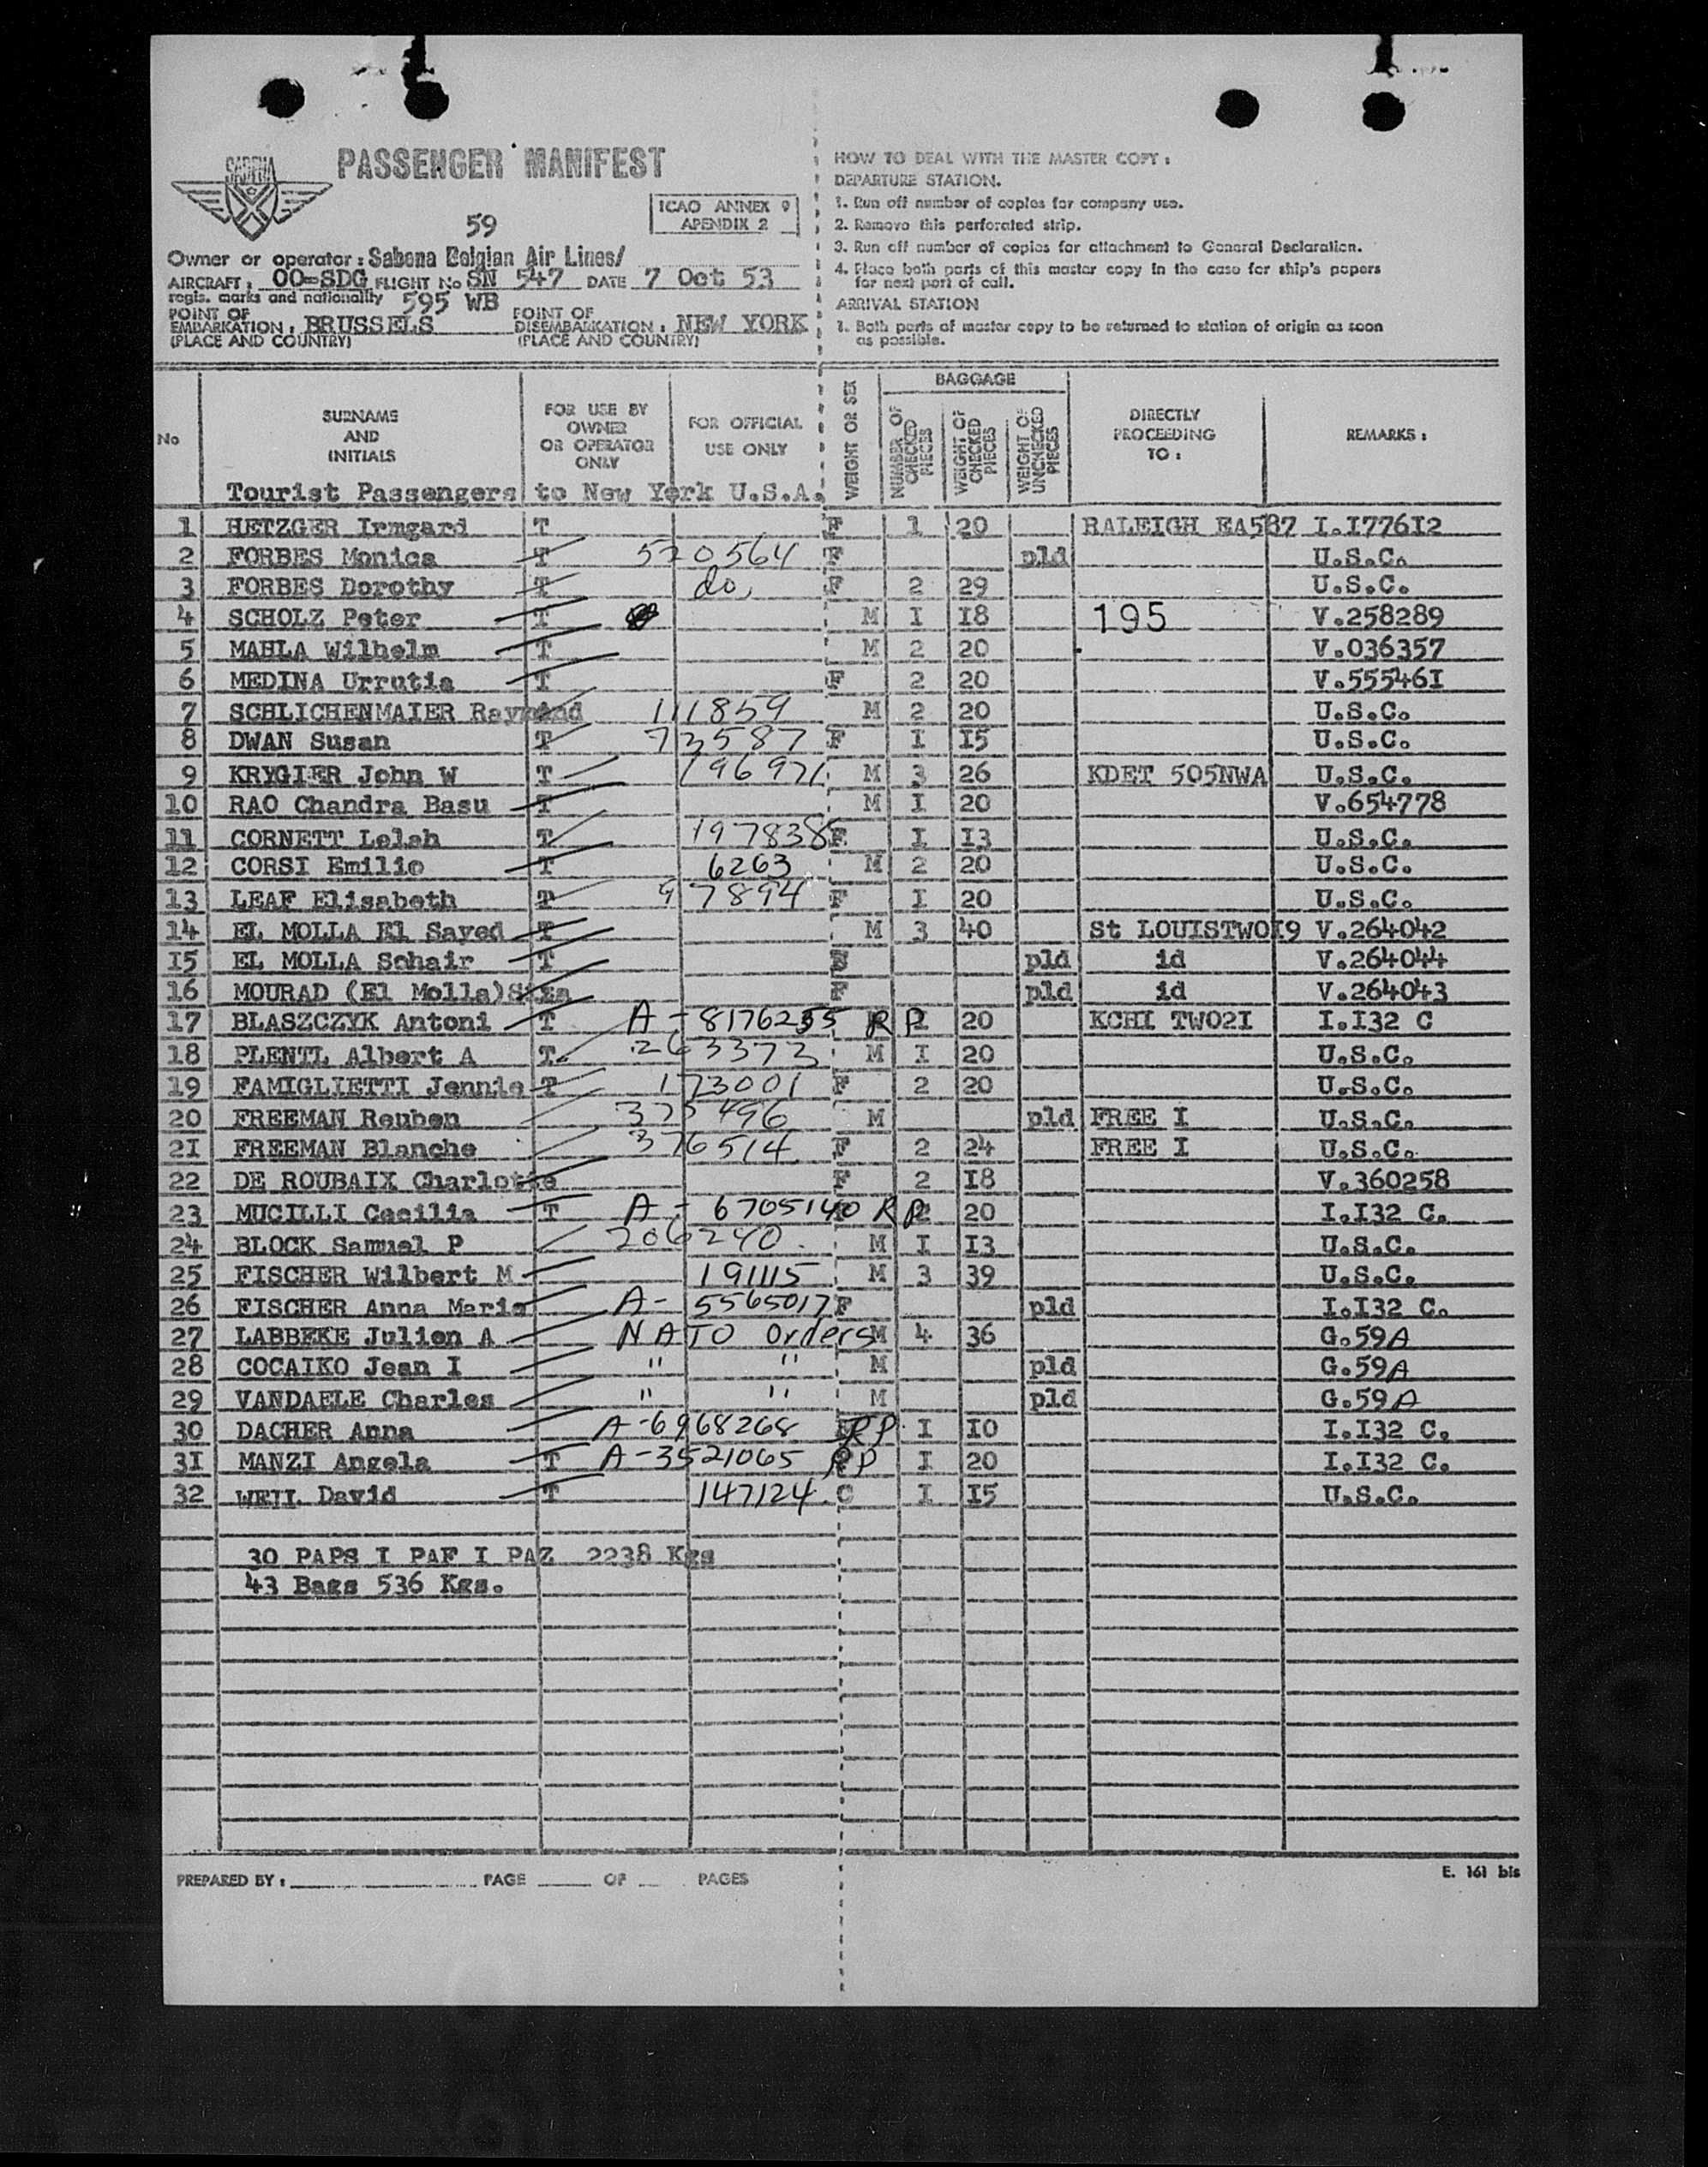 SABENA
PASSENGER MANIFEST
59
ICAO ANNEX 9
APENDIX 2
Owner or operator : Sabena Belgian Air Lines/
AIRCRAFT : OO-SDG FLIGHT No SN 547 DATE 7 Oct 53
regis. marks and nationality 595 WB
POINT OF EMBARKATION : BRUSSELS POINT OF DISEMBARKATION : NEW YORK
(PLACE AND COUNTRY) (PLACE AND COUNTRY)
HOW TO DEAL WITH THE MASTER COPY :
DEPARTURE STATION.
1. Run off number of copies for company use.
2. Remove this perforated strip.
3. Run off number of copies for attachment to General Declaration.
4. Place both parts of this master copy in the case for ship's papers
for next port of call.
ARRIVAL STATION
1. Both parts of master copy to be returned to station of origin as soon
as possible.
No SURNAME AND INITIALS FOR USE BY OWNER OR OPERATOR ONLY FOR OFFICIAL USE ONLY WEIGHT OR SEX BAGGAGE NUMBER OF CHECKED PIECES WEIGHT OF CHECKED PIECES WEIGHT OF UNCHECKED PIECES DIRECTLY PROCEEDING TO : REMARKS :
Tourist Passengers to New York U.S.A.
1 HETZGER Irmgard T F 1 20 RALEIGH EA587 I.I776I2
2 FORBES Monica T 520564 F pld U.S.C.
3 FORBES Dorothy T do, F 2 29 U.S.C.
4 SCHOLZ Peter T M I I8 195 V.258289
5 MAHLA Wilhelm T M 2 20 V.036357
6 MEDINA Urrutia T F 2 20 V.55546I
7 SCHLICHENMAIER Raymond 111859 M 2 20 U.S.C.
8 DWAN Susan T 73587 F I I5 U.S.C.
9 KRYGIER John W T 196971 M 3 26 KDET 505NWA U.S.C.
10 RAO Chandra Basu T M I 20 V.654778
11 CORNETT Lelah T 197838 F I I3 U.S.C.
12 CORSI Emilio T 6263 M 2 20 U.S.C.
13 LEAF Elisabeth T 97894 F I 20 U.S.C.
14 EL MOLLA El Sayed T M 3 40 St LOUISTWOI9 V.264042
I5 EL MOLLA Sohair T pld id V.264044
16 MOURAD (El Molla) F pld id V.264043
17 BLASZCZYK Antoni T A-8176255 RP 20 KCHI TWO2I I.I32 C
18 PLENTL Albert A T. 263373 M I 20 U.S.C.
19 FAMIGLIETTI Jennie T 173001 F 2 20 U.S.C.
20 FREEMAN Reuben 375496 M pld FREE I U.S.C.
2I FREEMAN Blanche 376514 F 2 24 FREE I U.S.C.
22 DE ROUBAIX Charlotte F 2 I8 V.360258
23 MUCILLI Cecilia T A-6705140 RP 2 20 I.I32 C.
24 BLOCK Samuel P 206240 M I I3 U.S.C.
25 FISCHER Wilbert M 191115 M 3 39 U.S.C.
26 FISCHER Anna Maria A-5565017 F pld I.I32 C.
27 LABBEKE Julien A NATO Orders M 4 36 G.59A
28 COCAIKO Jean I " " M pld G.59A
29 VANDAELE Charles " " M pld G.59A
30 DACHER Anna A-6968268 RP I I0 I.I32 C.
3I MANZI Angela T A-3521065 RP I 20 I.I32 C.
32 WEIL David T 147124 C I I5 U.S.C.
30 PAPS I PAF I PAZ 2238 Kgs
43 Bags 536 Kgs.
PREPARED BY : PAGE OF PAGES
E. 161 bis